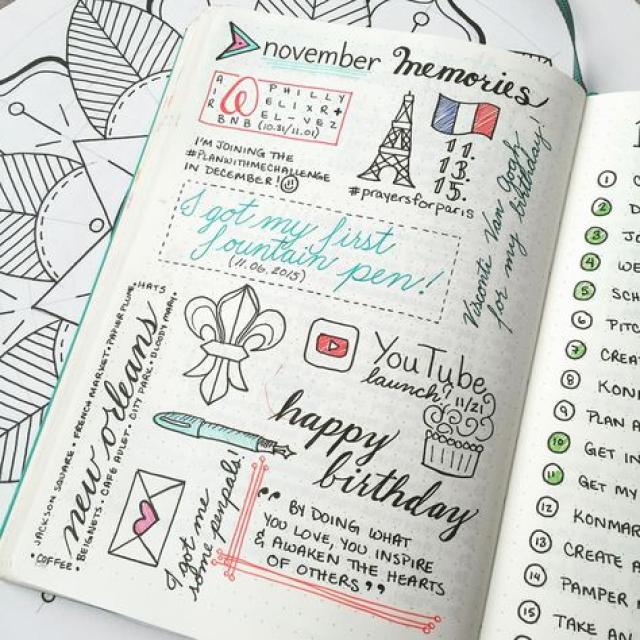 november Memories
AIR
BNB
PHILLY
ELIXR +
EL-VEZ
(10.31/11.01)
I'M JOINING THE
#PLANWITHMECHALLENGE
IN DECEMBER!
11.
13.
15.
#prayersforparis
Visconti Van Gogh
for my birthday!
I got my first
fountain pen!
(11.06.2015)
HATS
JACKSON SQUARE • FRENCH MARKET •
new orleans
• BEIGNETS • CAFE • CITY PARK • BLOODY MARY •
• COFFEE •
YouTube
launch! 11/21
happy
birthday
I got me
some penpals!
“ BY DOING WHAT
YOU LOVE, YOU INSPIRE
& AWAKEN THE HEARTS
OF OTHERS ”
1 C
2 D
3 JO
4 WE
5 SC
6 PITC
7 CREA
8 KONM
9 PLAN A
10 GET IN
11 GET MY
12 KONMAR
13 CREATE A
14 PAMPER M
15 TAKE AL